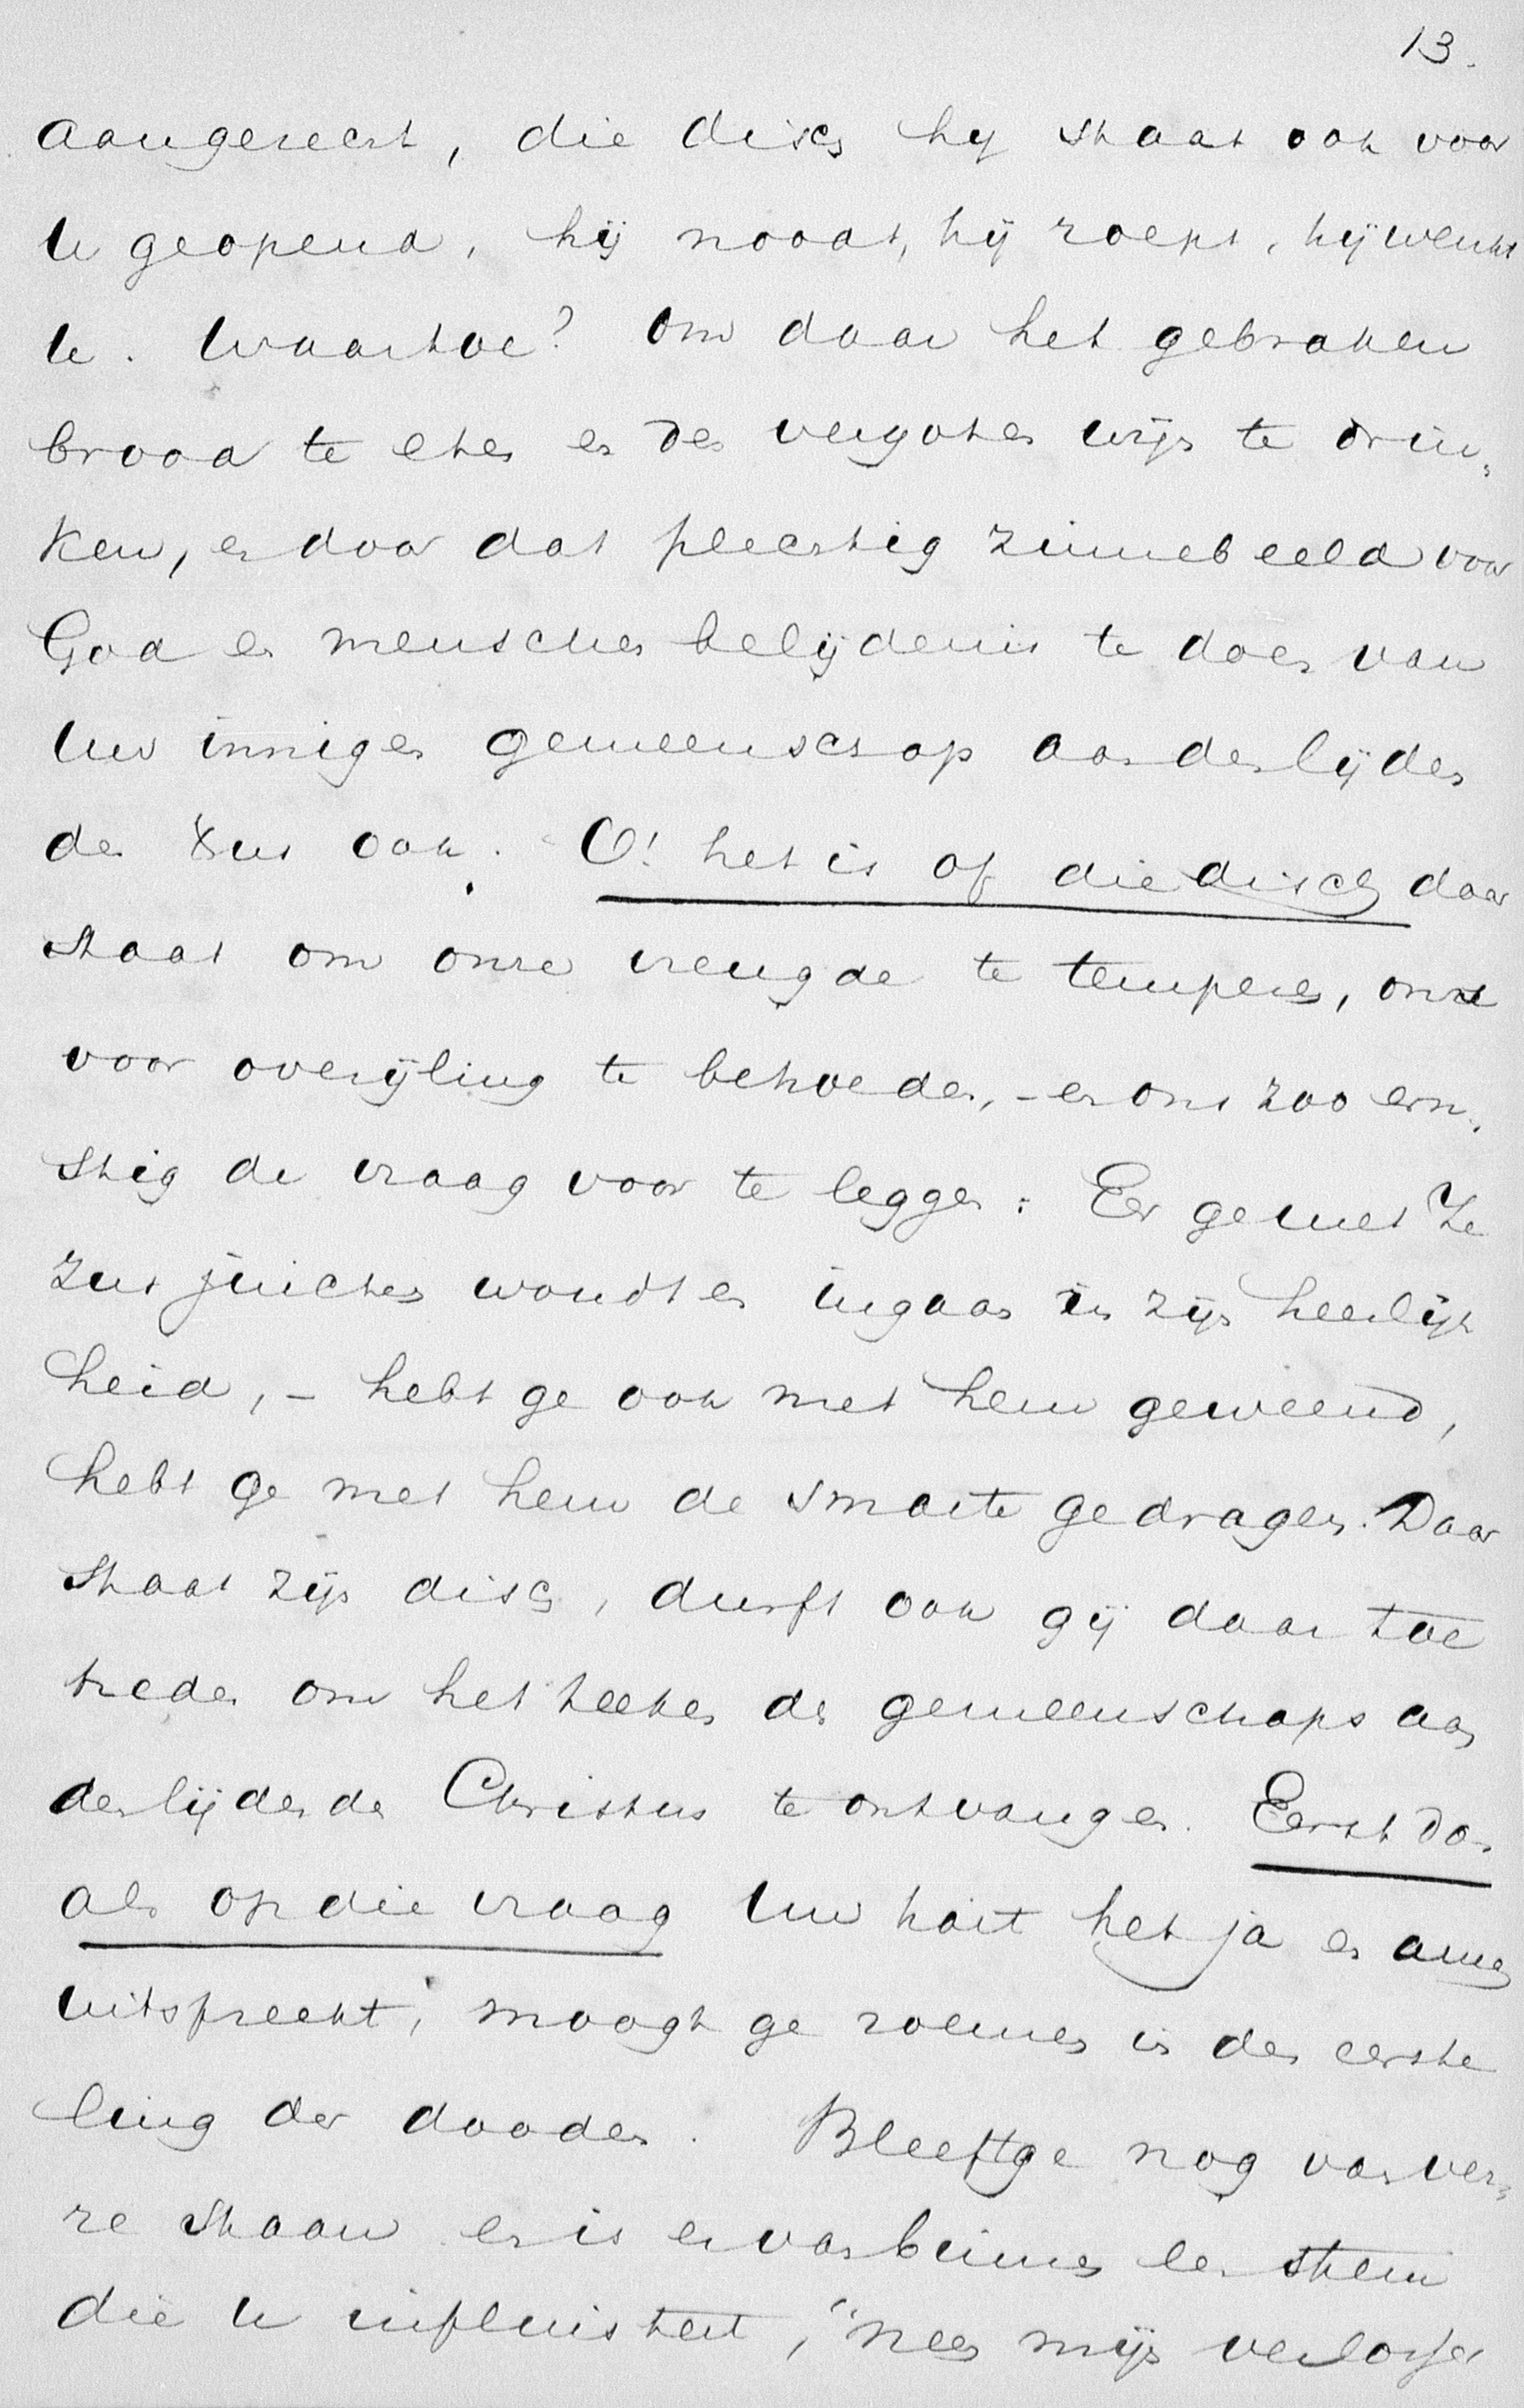 13.
aangerecht, die disch hij staat ook voor
U geopend, hij noodt, hij roept, hij wenkt
U. Waartoe? Om daar het gebroken
brood te eten en den vergoten wijn te drin„
ken, en door dat plechtig zinnebeeld voor
God en menschen belijdenis te doen van
Uw innige gemeenschap aan den lijden
den Xus ook. O! het is of die disch daar
staat om onze vreugde te temperen, ons
voor overijling te behoeden, – en ons zoo ern„
stig de vraag voor te leggen: Eer ge met Je
zus juichen woudt en ingaan in zijn heerlijk
heid, – hebt ge ook met hem geweend,
hebt ge met hem de smarte gedragen. Daar
staat zijn disch, durft ook gij daar toe
treden om het teeken der gemeenschaps aan
den lijdenden Christus te ontvangen. Eerst dan
als op die vraag Uw hart het ja en amen
uitspreekt, moogt ge roemen in den eerste
ling der dooden. Bleeft ge nog van ver„
re staan en is er van binnen een stem
die U influistert, "neen mijn verlosser